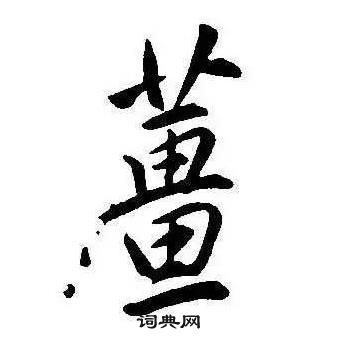 薑
词典网